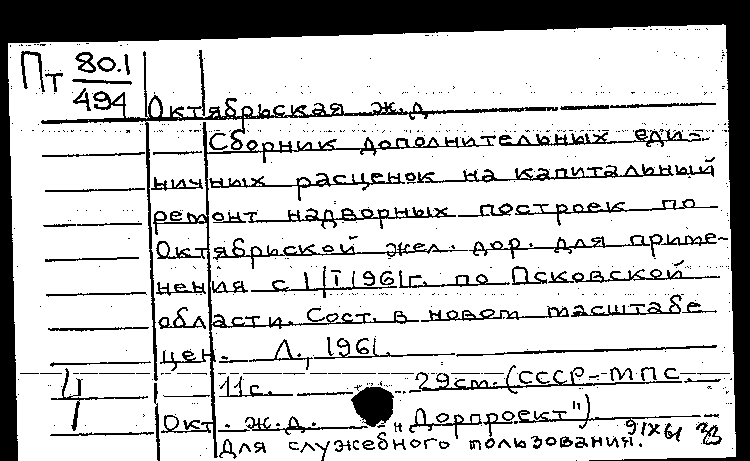 Пт 80.1
494
Октябрьская ж.д
Сборник дополнительных еди-
ничных расценок на капитальный
ремонт надворных построек по
Октябрьской жел. дор. для приме-
нения с 1/I 1961г. по Псковской
области. Сост. в новом масштабе
цен. Л., 1961.
11с. 29см. (СССР-МПС.
Окт. ж.д. "Дорпроект")
Для служебного пользования. 9/IX61